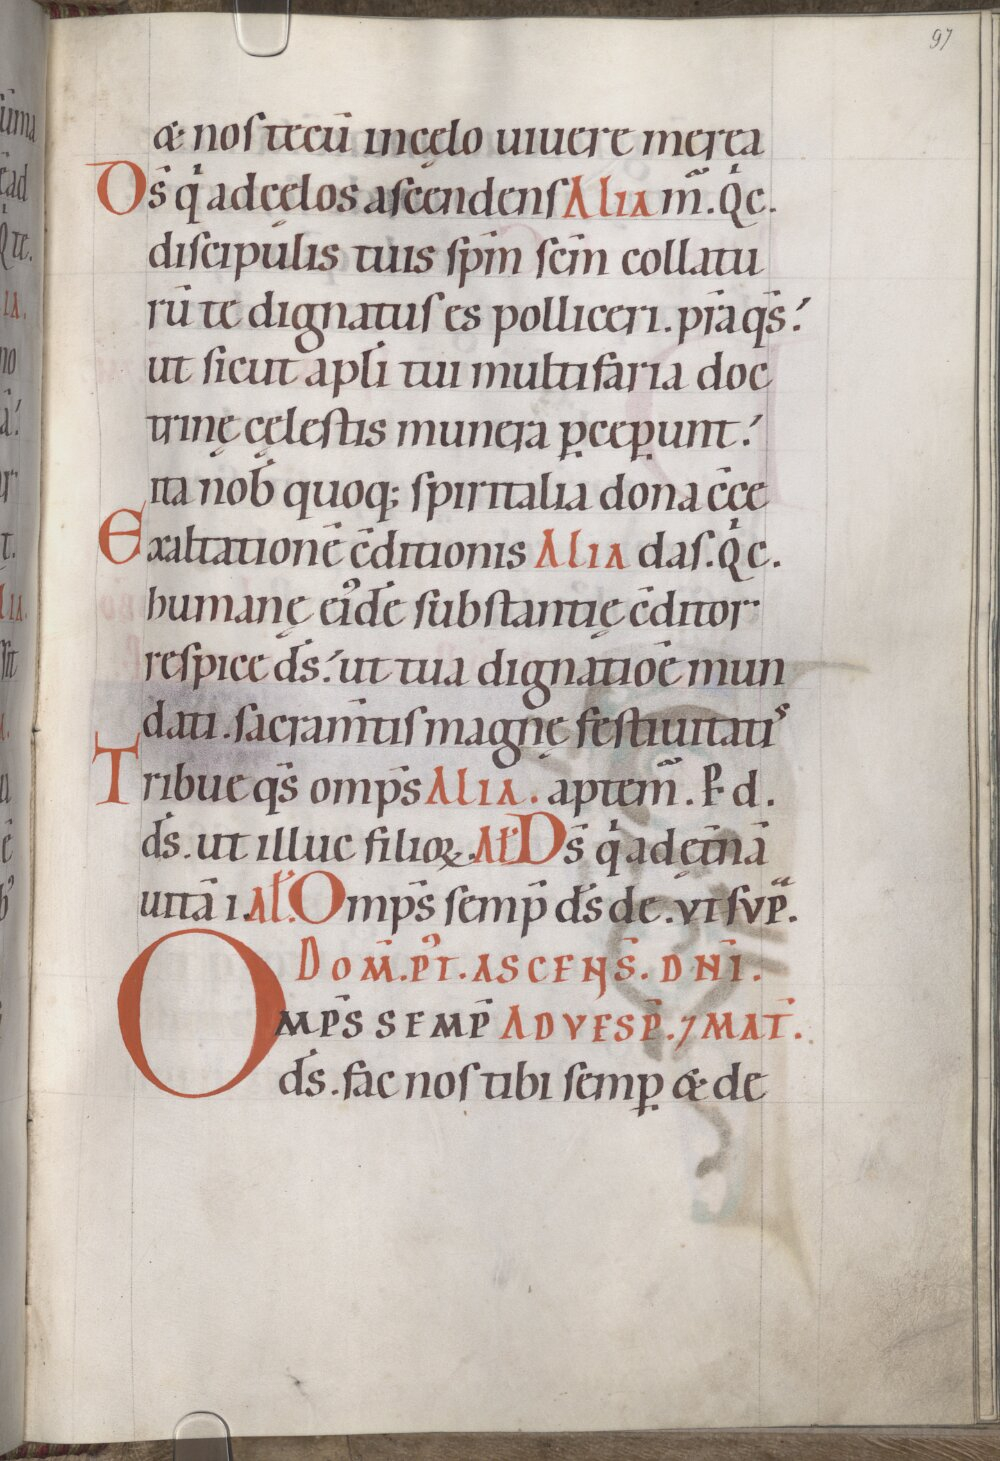 97
& nos tecū in cęlo uiuere merea
Ds̄ q̇ ad cęlos ascendens ALIA m̃. Q̇ c.
discipulis tuis sp̄m sc̄m collatu
rū te dignatus es polliceri. pr̄a qs̄!
ut sicut apłi tui multifaria doc
trinę cęlestis munera ꝑceꝑunt!
ita nob̄ quoq; spiritalia dona c̄ce
Exaltationē c̄ditionis ALIA das. Q̇ c.
humanę ei᾽dē substantię c̄ditor
respice ds̄! ut tua dignatiōe mun
dati. sacram̄tis magnę festiuitatis
Tribue qs̄ omp̄s ALIA. aptem̃. P d.
ds̄. ut illuc filioꝝ. Ał Ds̄ q̇ ad ęt̄nā
uitā i. Ał. Omp̄s semp̄ ds̄ de. VT SVP̃.
DOM̄. P᾽T. ASCENS̄. DN̄I.
OMP̄S SEMP̄ AD VESP̄. ⁊ MAT̄.
ds̄. fac nos tibi semꝑ & de